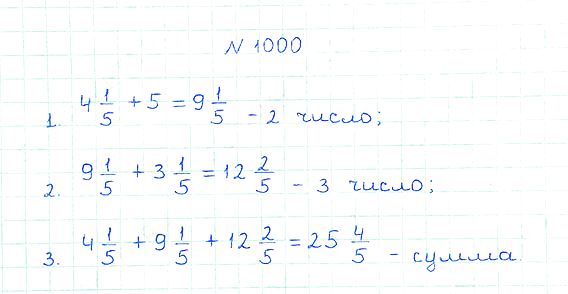 N 1000
1. 4 1/5 + 5 = 9 1/5 - 2 число;
2. 9 1/5 + 3 1/5 = 12 2/5 - 3 число;
3. 4 1/5 + 9 1/5 + 12 2/5 = 25 4/5 - сумма.